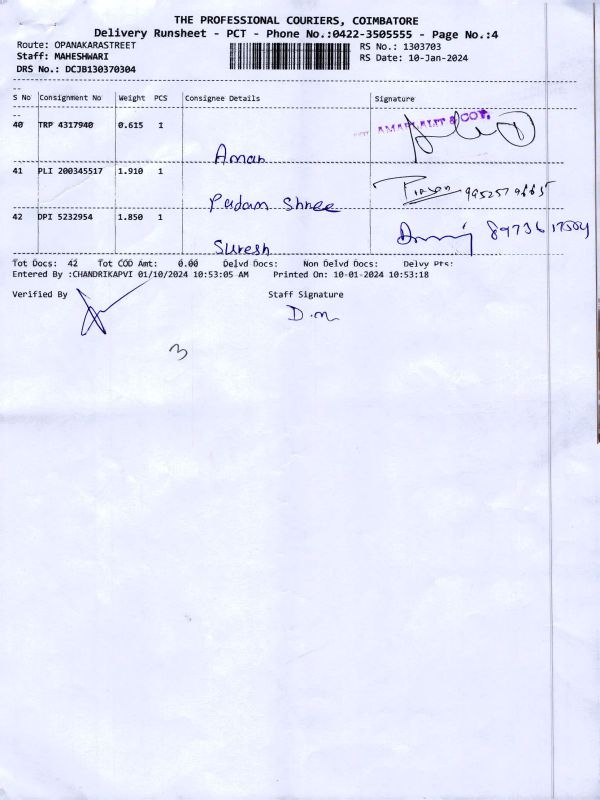 THE PROFESSIONAL COURIERS, COIMBATORE
Delivery Runsheet - PCT - Phone No.:0422-3505555 - Page No.:4
Route: OPANAKARASTREET RS No.: 1303703
Staff: MAHESHWARI RS Date: 10-Jan-2024
DRS No.: DCJB130370304
S No Consignment No Weight PCS Consignee Details Signature
40 TRP 4317940 0.615 1
Aman
41 PLI 200345517 1.910 1
Padam Shree
42 DPI 5232954 1.850 1 8973617504
Suresh
Tot Docs: 42 Tot COD Amt: 0.00 Delvd Docs: Non Delvd Docs: Delvy Pts:
Entered By :CHANDRIKAPVI 01/10/2024 10:53:05 AM Printed On: 10-01-2024 10:53:18
Verified By Staff Signature
D.m
3